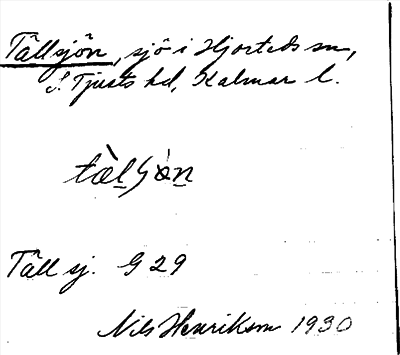 Tällsjön, sjö i Hjorteds sn,
S. Tjusts hd, Kalmar l.
tæ̀lʃǿn
Täll sj. G 29
Nils Henrikson 1930